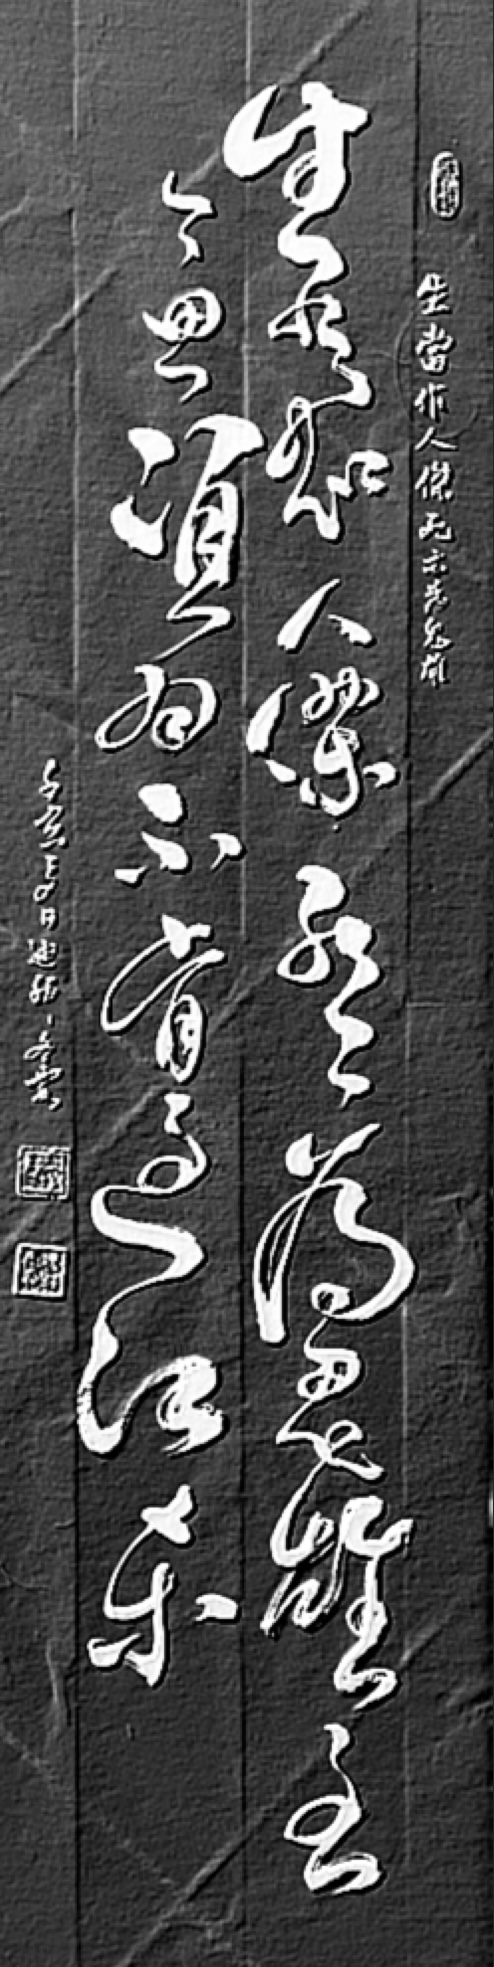 生當作人傑死亦為鬼雄
生當作人傑死亦為鬼雄至
今思項羽不肯過江東